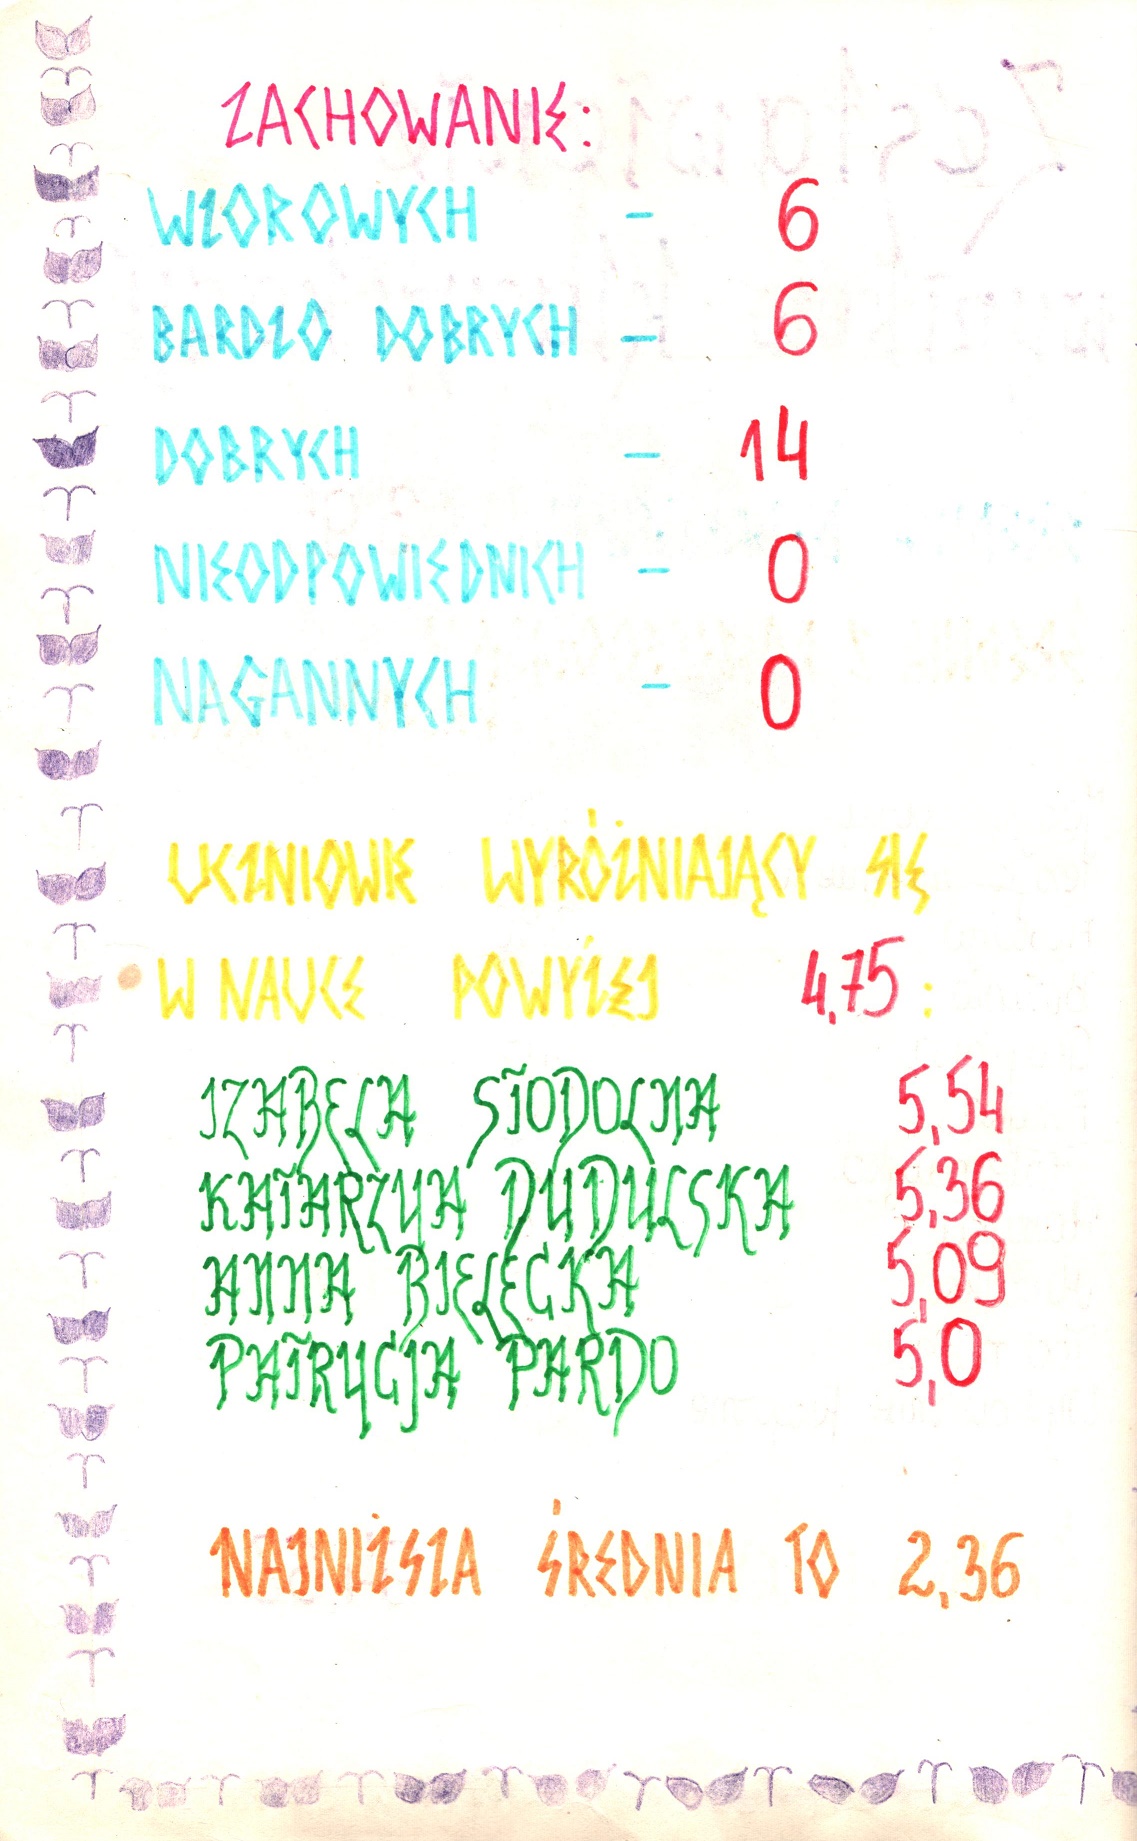 ZACHOWANIE:
WZOROWYCH - 6
BARDZO DOBRYCH - 6
DOBRYCH - 14
NIEODPOWIEDNICH - 0
NAGANNYCH - 0
UCZNIOWIE WYRÓŻNIAJĄCY SIĘ
W NAUCE POWYŻEJ 4,75:
IZABELA SIODOLNA 5,54
KATARZYNA DUDULSKA 5,36
ANNA BIELECKA 5,09
PATRYCJA PARDO 5,0
NAJNIŻSZA ŚREDNIA TO 2,36